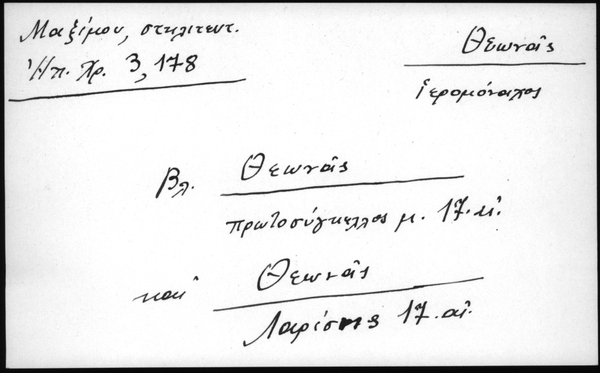 Μαξίμου, στηλιτευτ.
Ἠπ. Χρ. 3, 178
Θεωνᾶς
ἱερομόναχος
Βλ. Θεωνᾶς
πρωτοσύγκελλος μ. 17. αἰ.
καὶ Θεωνᾶς
Λαρίσης 17. αἰ.